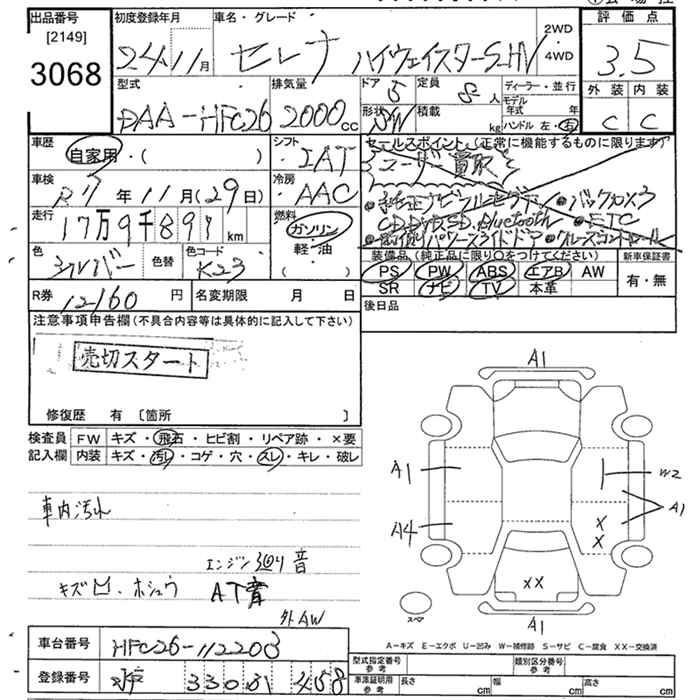 出品番号 初度登録年月 車名・グレード 2WD・4WD 評価点
[2149]
3068
24.11月 セレナ ハイウェイスターS-HV 3.5
型式 排気量 ドア 5 定員 8人 ディーラー・並行 外装 内装
DAA-HFC26 2000cc 形状 SW 積載 kg モデル年式 年 C C
ハンドル 左・右
車歴 シフト セールスポイント (正常に機能するものに限ります)
自家用・( ) IAT ユーザー買取
車検 冷房
R7年11月(29日) AAC
・純正ナビ フルセグTV ・バックカメラ
走行 17万9千897km 燃料 ガソリン・軽・油
CD,DVD,SD,Bluetooth ・ETC
・両側パワースライドドア ・クルーズコントロール
色 シルバー 色替 色コード K23
装備品 (純正品に限り○をつけてください) 新車保証書
PS PW ABS エアB AW 有・無
SR ナビ TV 本革
R券 12160円 名変期限 月 日
後日品
注意事項申告欄(不具合内容等は具体的に記入して下さい)
売切スタート
修復歴 有 〔箇所 〕
検査員記入欄 FW キズ・飛石・ヒビ割・リペア跡・×要
内装 キズ・汚レ・コゲ・穴・スレ・キレ・破レ
A1
A1 W2
A1
A4 X
X
XX
スペア
A1
車内汚れ
エンジン廻り音
キズ凹.ホシュウ AT音
外AW
A=キズ E=エクボ U=凹み W=補修跡 S=サビ C=腐食 XX=交換済
車台番号 HFC26-112203 型式指定番号 参考 類別区分番号 参考
登録番号 330 458 車庫証明用 参考 長さ cm 幅 cm 高さ cm